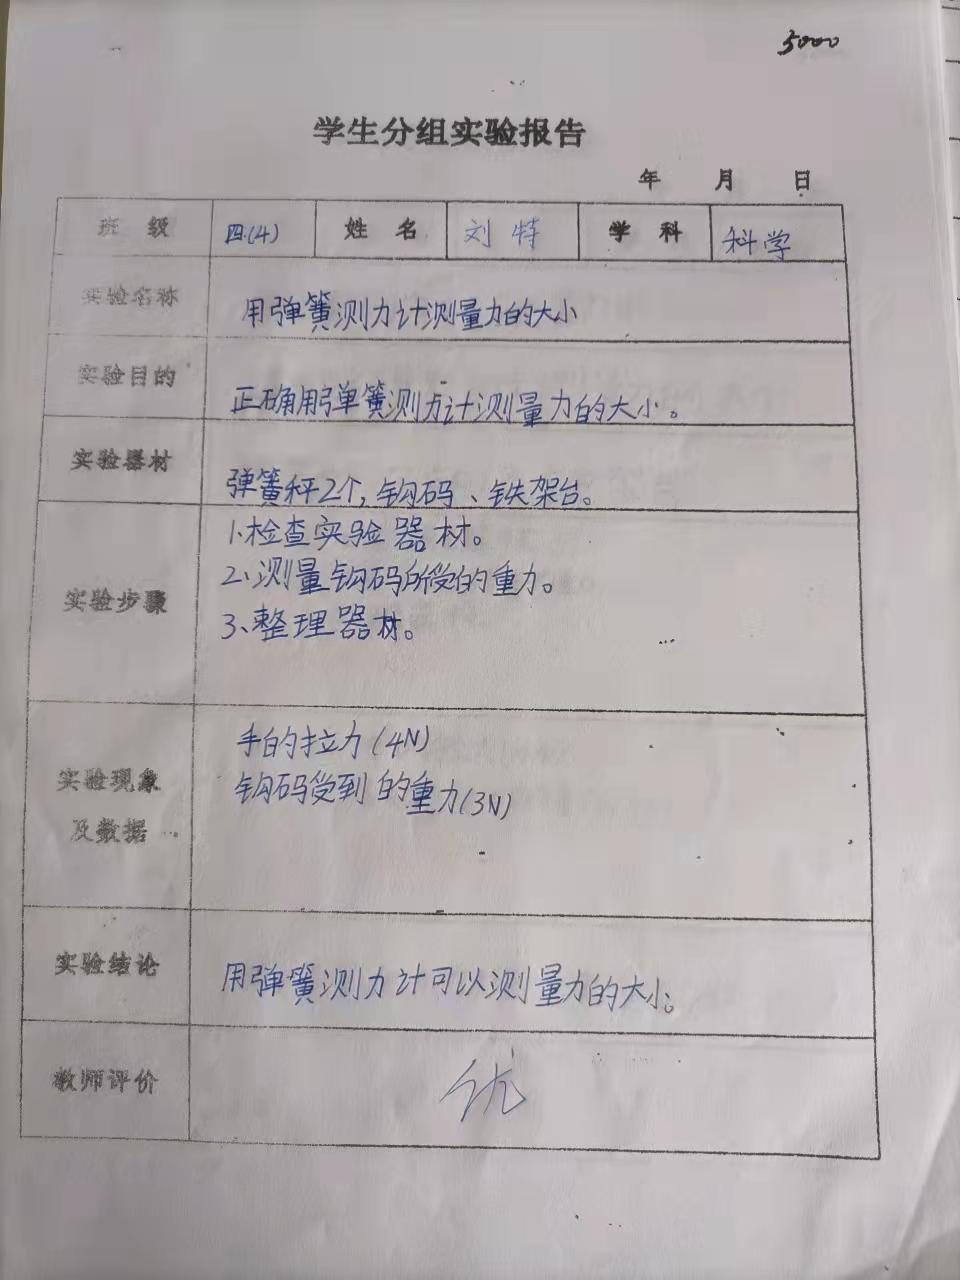 5000
学生分组实验报告
年 月 日
班 级 四.(4) 姓 名 刘特 学 科 科学
实验名称 用弹簧测力计测量力的大小
实验目的 正确用弹簧测力计测量力的大小。
实验器材 弹簧秤2个,钩码、铁架台。
实验步骤
1.检查实验器材。
2、测量钩码所受的重力。
3、整理器材。
实验现象
及数据
手的拉力(4N)
钩码受到的重力(3N)
实验结论 用弹簧测力计可以测量力的大小。
教师评价 优